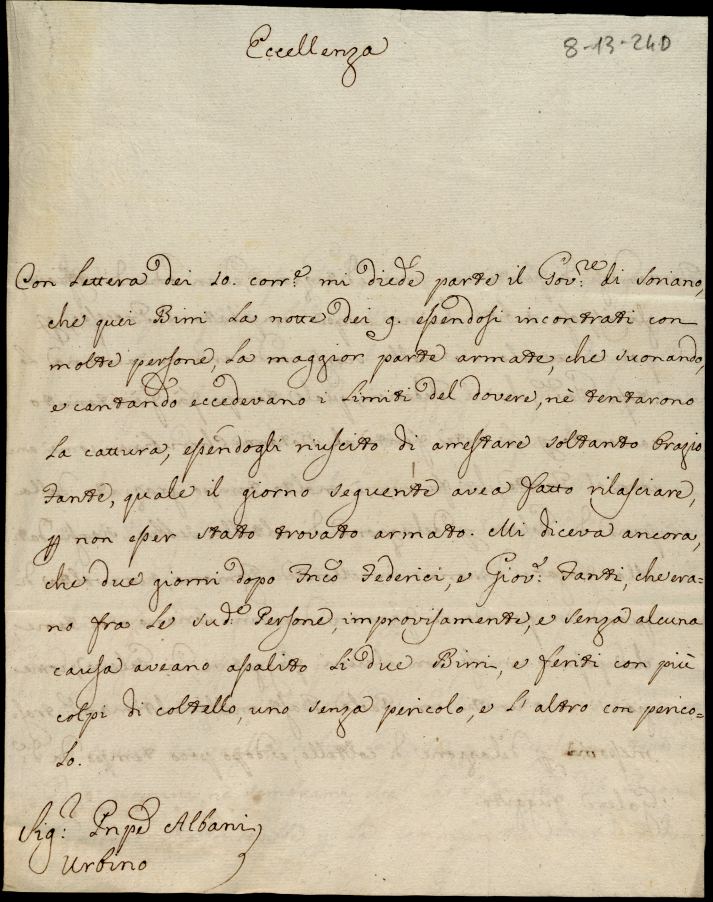 Eccellenza
8-13-240
Con Lettera dei 10. corr.e mi diede parte il Gov.re di Soriano,
che quei Birri la notte dei 9. essendosi incontrati con
molte persone, la maggior parte armate, che suonando,
e cantando eccedevano i limiti del dovere, nè tentarono
la cattura, essendogli riuscito di arrestare soltanto Orazio
Fante, quale il giorno seguente avea fatto rilasciare,
p non esser stato trovato armato. Mi diceva ancora,
che due giorni dopo Fnco Federici, e Giov: Fanti, che era=
no fra le sud.e Persone, improvisamente, e senza alcuna
causa aveano assalito li due Birri, e feriti con più
colpi di coltello, uno senza pericolo, e l'altro con perico=
lo.
Sig.r Pnpe Albani
Urbino